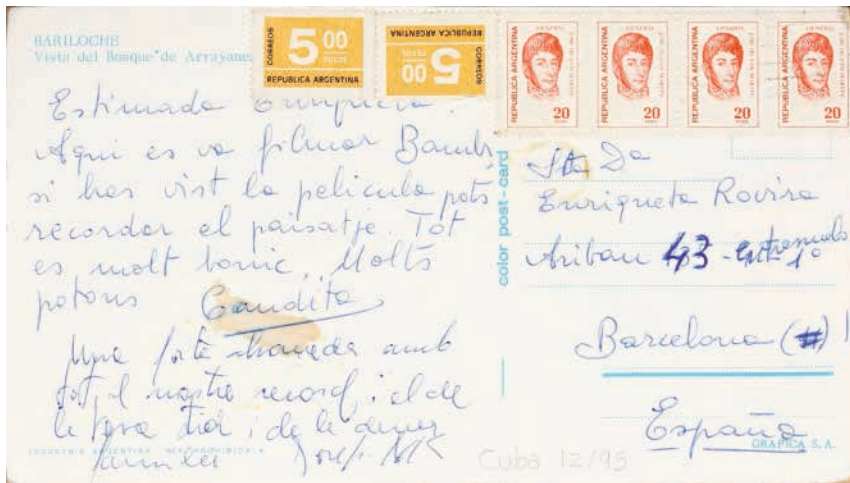 BARILOCHE
Vista del Bosque de Arrayane
CORREOS
5 00
PESOS
REPUBLICA ARGENTINA
CORREOS
5 00
PESOS
REPUBLICA ARGENTINA
REPUBLICA ARGENTINA
20
REPUBLICA ARGENTINA
20
REPUBLICA ARGENTINA
20
REPUBLICA ARGENTINA
20
Estimada
Aqui es va filmar Bambi
si has vist la pelicula pots
recordar el paisatje. Tot
es molt bonic. Molts
petons Candita
Una forta abraçada amb
tot el nostre record i el de
la teva tia i de la
familia
INDUSTRIA ARGENTINA
color post-card
Sta Da
Enriqueta Rovira
Aribau 43 - 1º
Barcelona
España
GRAFICA S.A.
Cuba 12/95